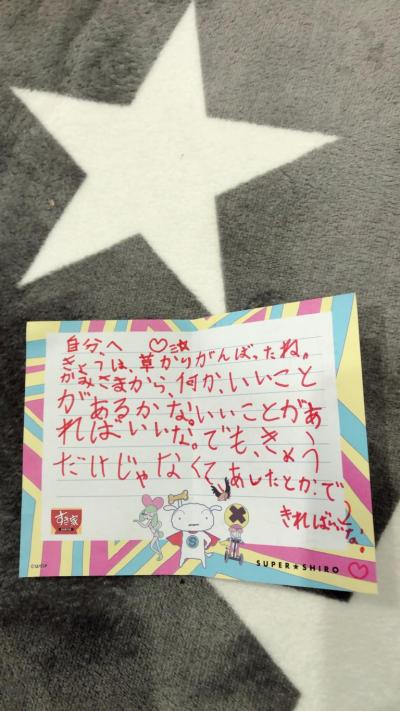 自分へ ♡☆
きょうは、草かりがんばったね。
かみさまから、何か、いいこと
があるかな。いいことがあ
ればいいな。でも、きょう
だけじゃなくて、あしたとか、で
きればいいな!
すき家
S
SUPER★SHIRO ♡